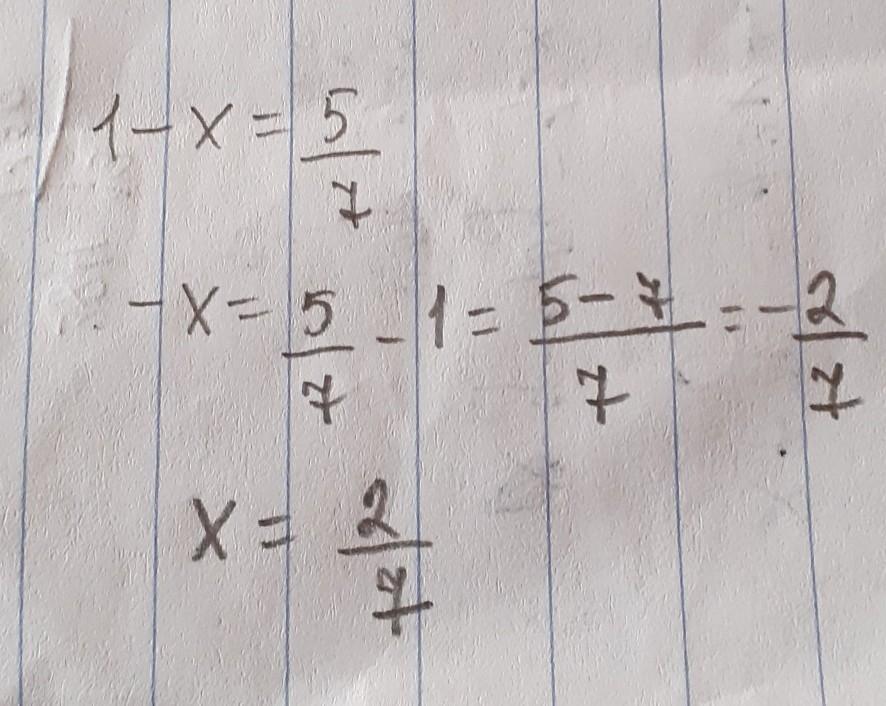 1 - x = 5/7
- x = 5/7 - 1 = (5 - 7)/7 = - 2/7
x = 2/7